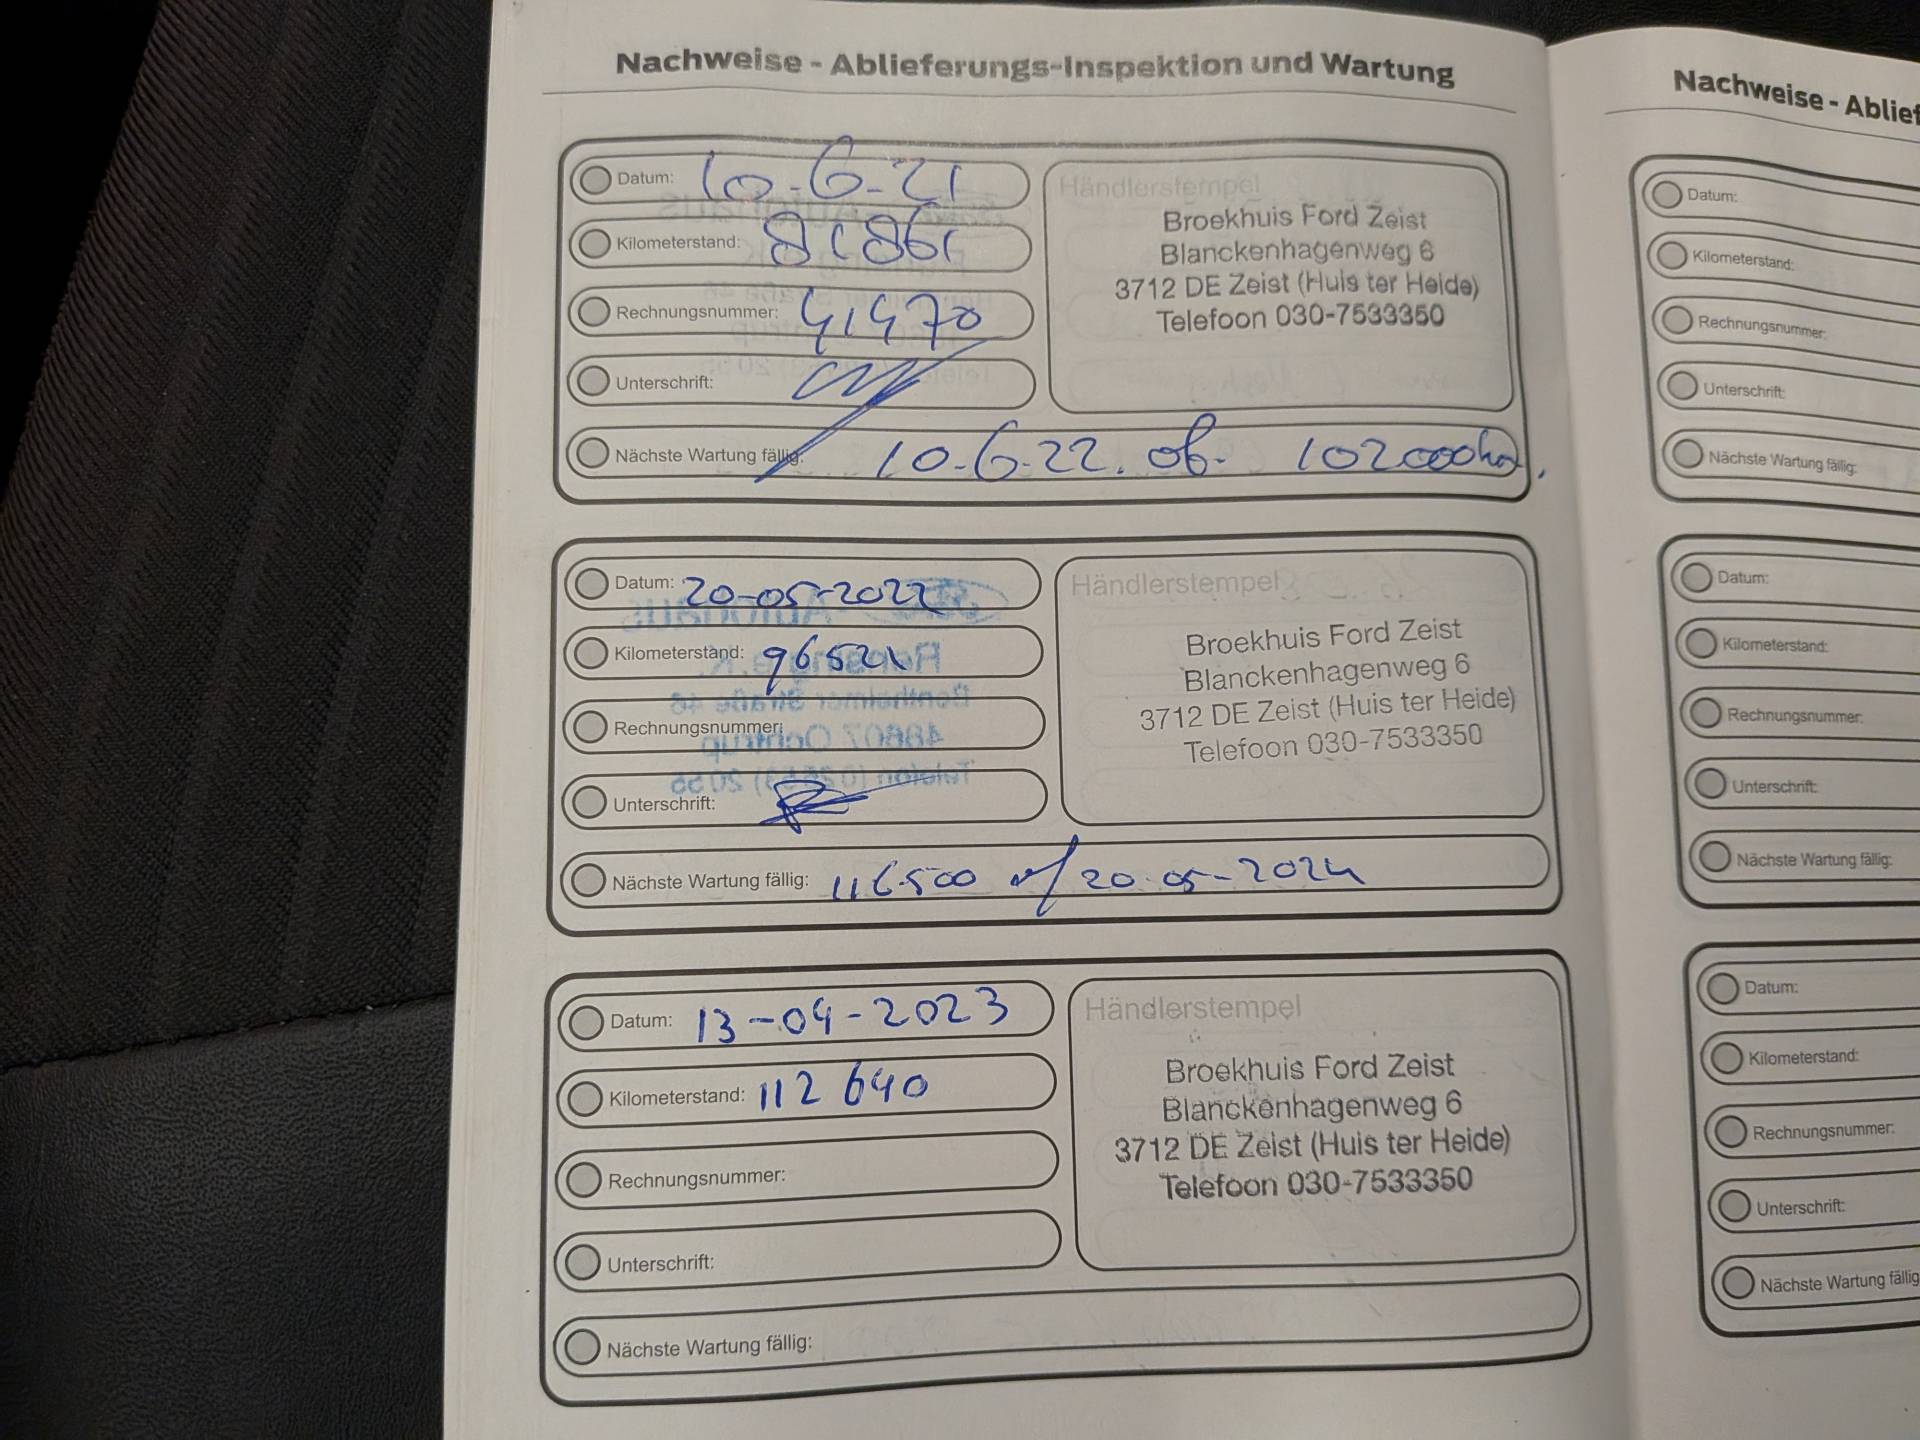 Nachweise - Ablieferungs-Inspektion und Wartung
Datum: 10-6-21
Kilometerstand: 81861
Rechnungsnummer: 41470
Unterschrift:
Nächste Wartung fällig: 10-6-22. of. 102000km.
Händlerstempel
Broekhuis Ford Zeist
Blanckenhagenweg 6
3712 DE Zeist (Huis ter Heide)
Telefoon 030-7533350
Datum: 20-05-2022
Kilometerstand: 96521
Rechnungsnummer:
Unterschrift:
Nächste Wartung fällig: 116.500 of 20-05-2024
Händlerstempel
Broekhuis Ford Zeist
Blanckenhagenweg 6
3712 DE Zeist (Huis ter Heide)
Telefoon 030-7533350
Datum: 13-04-2023
Kilometerstand: 112 640
Rechnungsnummer:
Unterschrift:
Nächste Wartung fällig:
Händlerstempel
Broekhuis Ford Zeist
Blanckenhagenweg 6
3712 DE Zeist (Huis ter Heide)
Telefoon 030-7533350
Nachweise - Ablief
Datum:
Kilometerstand:
Rechnungsnummer:
Unterschrift:
Nächste Wartung fällig:
Datum:
Kilometerstand:
Rechnungsnummer:
Unterschrift:
Nächste Wartung fällig:
Datum:
Kilometerstand:
Rechnungsnummer:
Unterschrift:
Nächste Wartung fällig